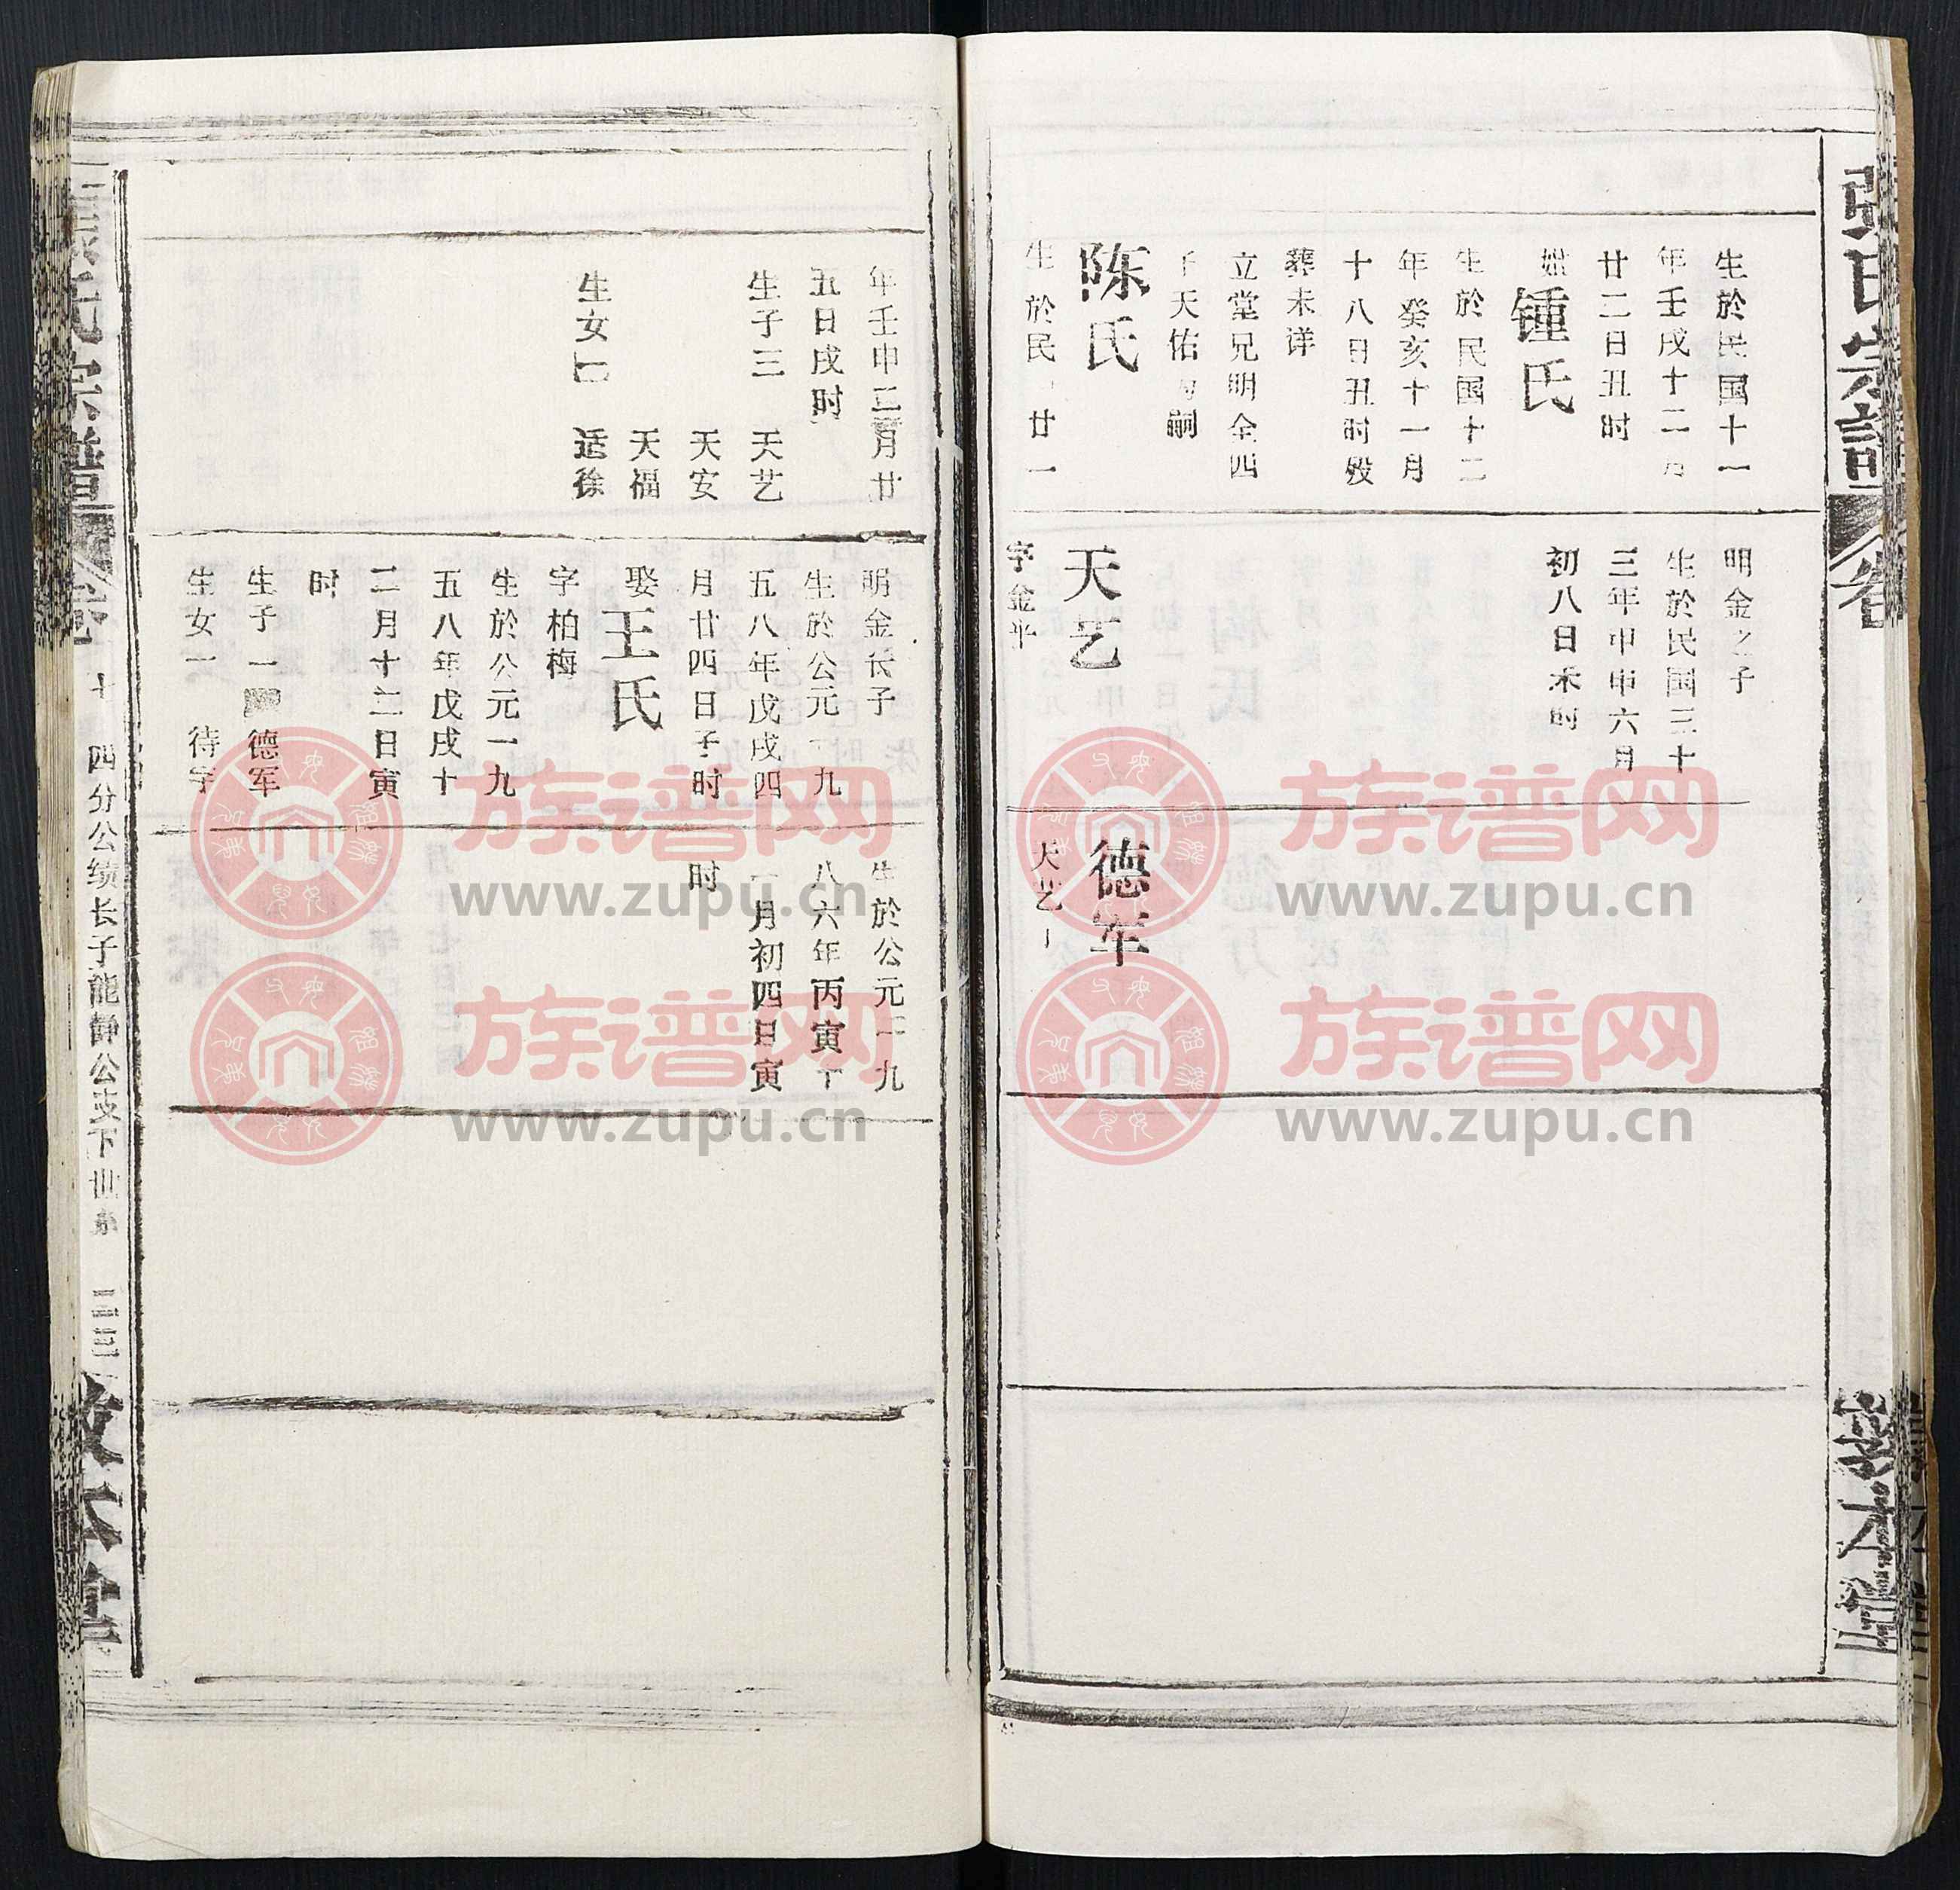 张氏宗譜
卷
敦本堂
生於民国十一
年壬戌十二月
廿二日丑时
妣锺氏
生於民国十二
年癸亥十一月
十八日丑时殁
葬未详
立堂兄明全四
子天佑为嗣
陈氏
生於民国廿一
明金之子
生於民国三十
三年甲申六月
初八日未时
天艺
字金平
德军
天艺
年壬申三月廿
五日戌时
生子三 天艺
天安
天福
生女二 适徐
明金长子
生於公元一九
五八年戊戌四
月廿四日子时
娶王氏
字柏梅
生於公元一九
五八年戊戌十
二月十二日寅
时
生子一 德军
生女一 待字
生於公元一九
八六年丙寅十
一月初四日寅
时
张氏宗譜
卷十
四分公绩长子能静公支下世系
敦本堂
族谱网
www.zupu.cn
族谱网
www.zupu.cn
族谱网
www.zupu.cn
族谱网
www.zupu.cn